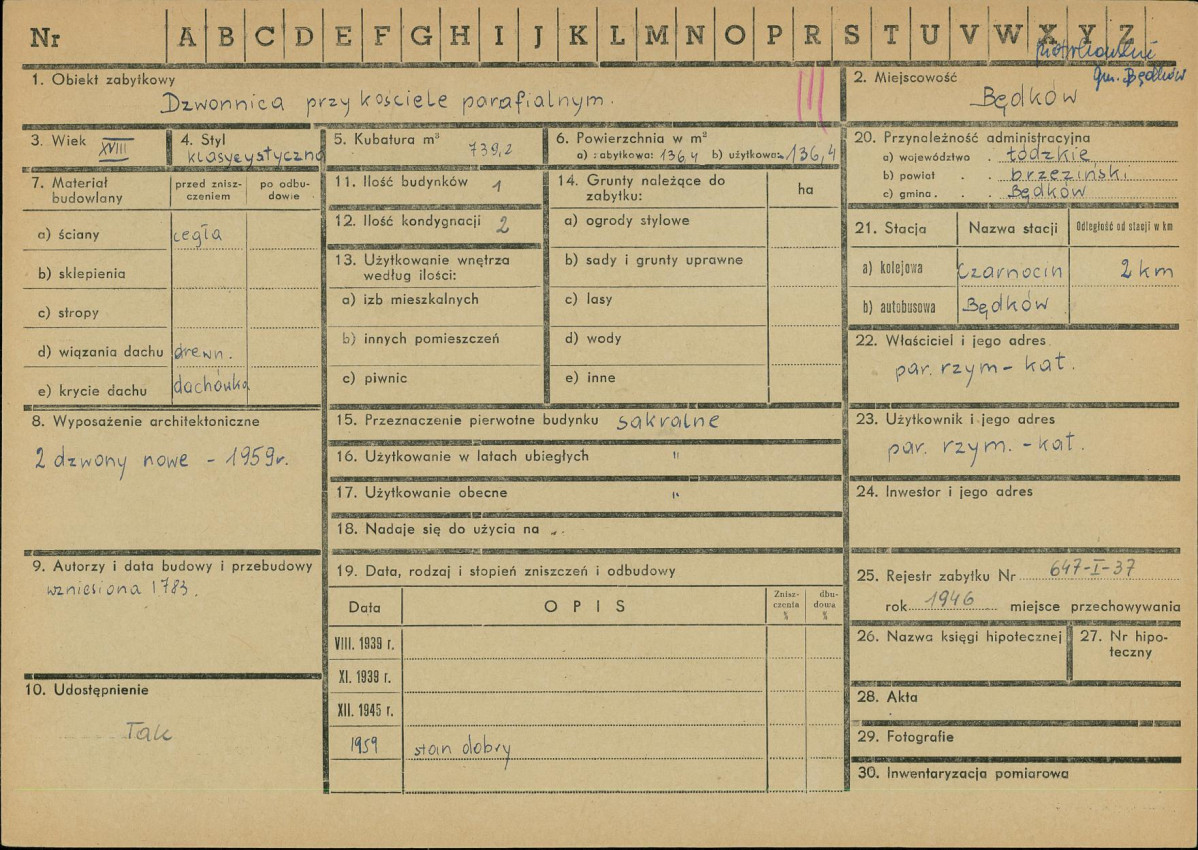 Nr A B C D E F G H I J K L M N O P R S T U V W X Y Z
gm. Będków
1. Obiekt zabytkowy
Dzwonnica przy kościele parafialnym.
III
2. Miejscowość
Będków
3. Wiek XVIII
4. Styl
klasycystyczna
5. Kubatura m³
739,2
6. Powierzchnia w m²
a) zabytkowa: 136,4 b) użytkowa: 136,4
7. Materiał
budowlany
przed znisz-
czeniem
po odbu-
dowie
a) ściany cegła
b) sklepienia
c) stropy
d) wiązania dachu drewn.
e) krycie dachu dachówka
8. Wyposażenie architektoniczne
2 dzwony nowe - 1959 r.
9. Autorzy i data budowy i przebudowy
wzniesiona 1783.
10. Udostępnienie
Tak
11. Ilość budynków 1
12. Ilość kondygnacji 2
13. Użytkowanie wnętrza
według ilości:
a) izb mieszkalnych
b) innych pomieszczeń
c) piwnic
14. Grunty należące do
zabytku:
ha
a) ogrody stylowe
b) sady i grunty uprawne
c) lasy
d) wody
e) inne
15. Przeznaczenie pierwotne budynku sakralne
16. Użytkowanie w latach ubiegłych "
17. Użytkowanie obecne "
18. Nadaje się do użycia na
19. Data, rodzaj i stopień zniszczeń i odbudowy
Data
OPIS
Znisz-
czenia
%
dbu-
dowa
%
VIII. 1939 r.
XI. 1939 r.
XII. 1945 r.
1959 stan dobry
20. Przynależność administracyjna
a) województwo . łódzkie
b) powiat . . brzeziński
c) gmina . . Będków
21. Stacja
Nazwa stacji
Odległość od stacji w km
a) kolejowa Czarnocin 2 km
b) autobusowa Będków
22. Właściciel i jego adres
par. rzym - kat.
23. Użytkownik i jego adres
par. rzym. - kat.
24. Inwestor i jego adres
25. Rejestr zabytku Nr 647-I-37
rok 1946 miejsce przechowywania
26. Nazwa księgi hipotecznej
27. Nr hipo-
teczny
28. Akta
29. Fotografie
30. Inwentaryzacja pomiarowa